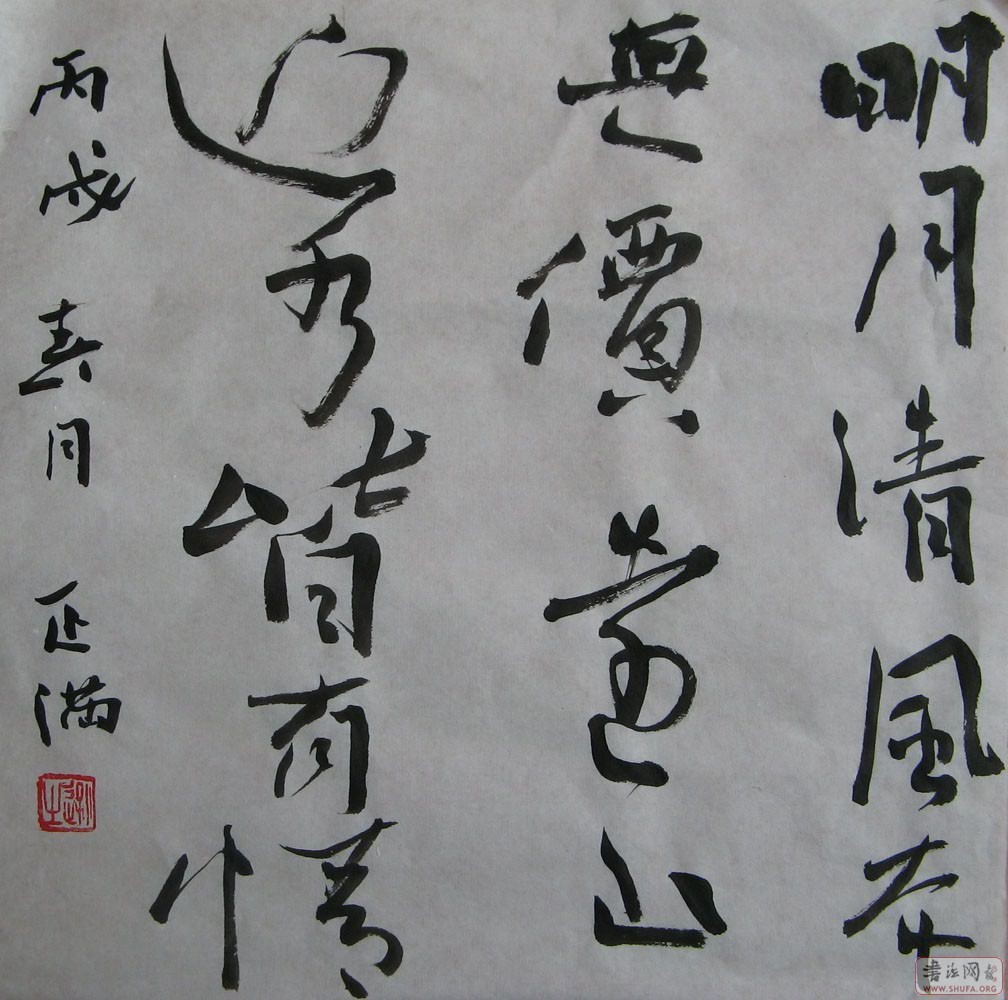 明月清風本
無價遠山
近水皆有情
丙戌春月 正满
書法网
WWW.SHUFA.ORG